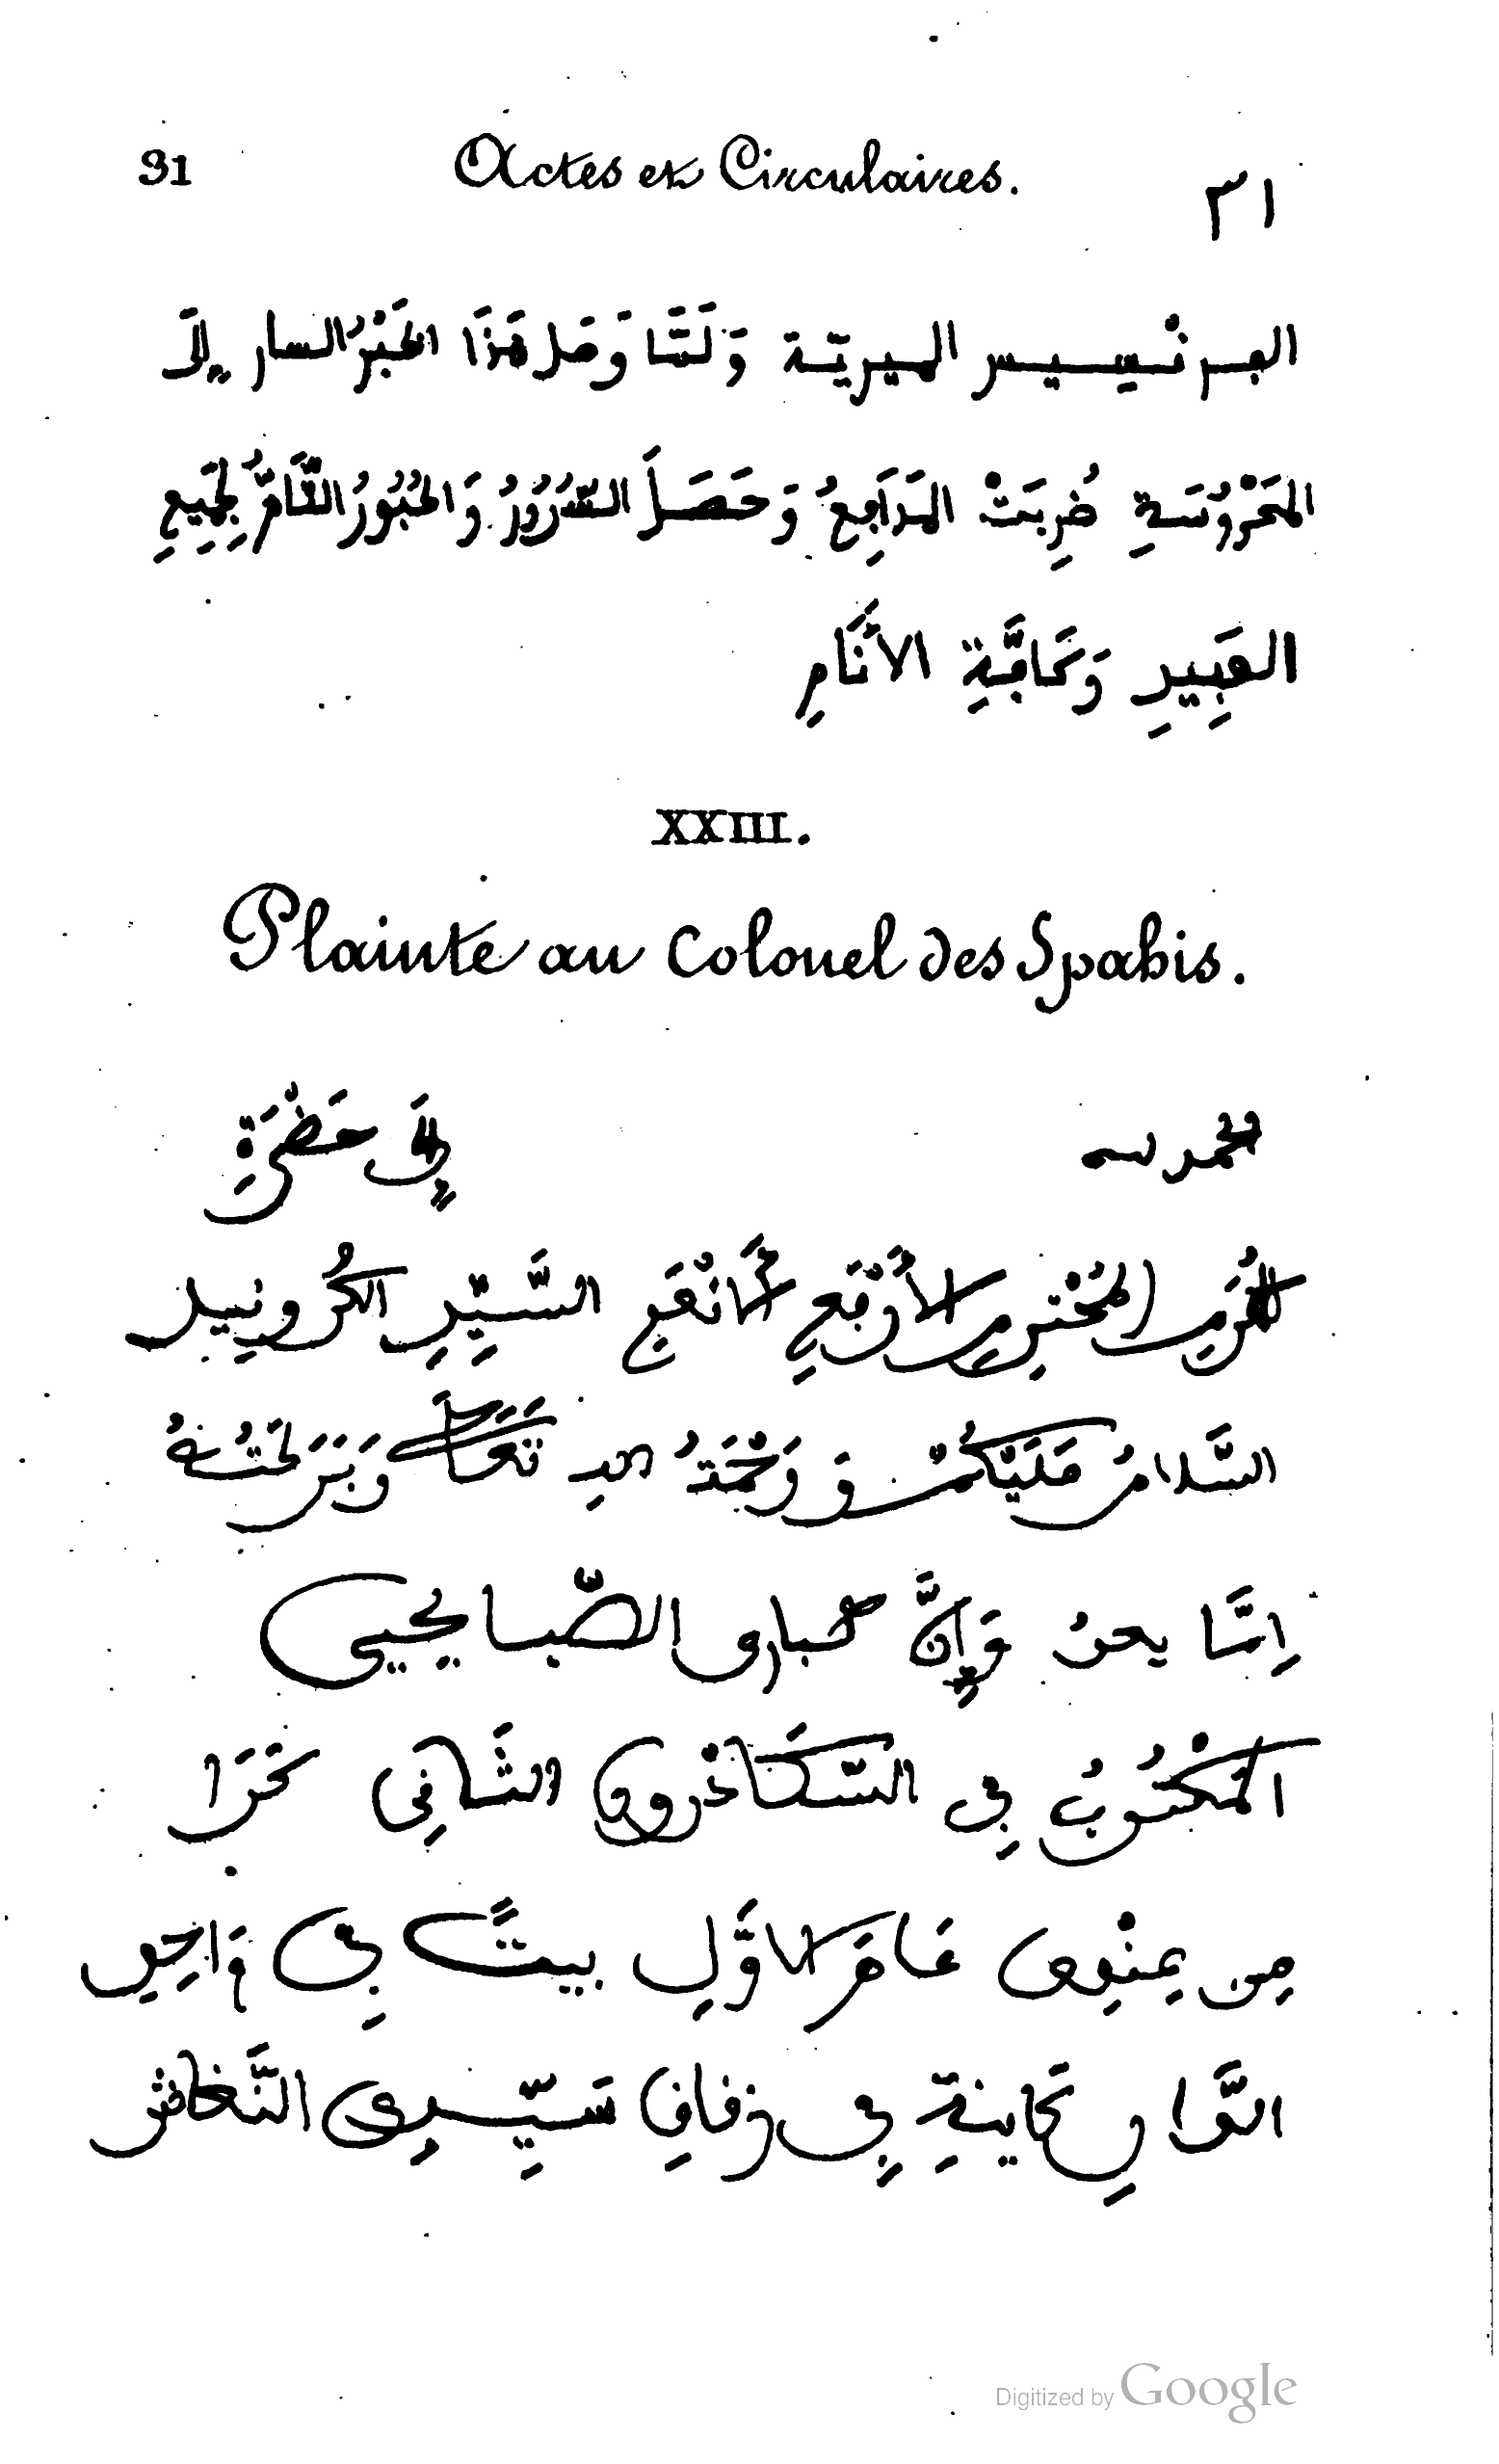 31 Actes et Circulaires. ٣١
البرنسيس الميرية وَلَمَّا وَصَل هَذَا الخَبَرُ السار إلَى
المَحْرُوسَةِ ضُرِبَتْ المَدَابِعُ وَحَصَلَ السُّرُورُ وَالحُبُورُ التَّامُّ لِجَمِيعِ
العَبِيدِ وَكَابَّةِ الأَنَامِ
XXIII.
Plainte au Colonel des Spahis.
الحمد لله إِلَى حَضْرَةِ
المُحْتَرَمِ الأَرْبَعِ الأَنْبَعِ السَّيِّدِ الكُرونيل
السَّلَامُ عَلَيْكُمْ وَرَحْمَةُ اللهِ تَعَالَى وَبَرَكَتُهُ
اِمَّا بعد بَإِنَّ مبارك الصَّبايحي
المَكْتُوبُ فِي السَّكَادْرون الثَّانِي كَرَا
مِن عِنْدِي عَامَ الاوَّلِ بيتًا فِي وَاحِد
الدَّار كَاينةٍ فِي زنقةِ سَيِّدِي
Digitized by Google